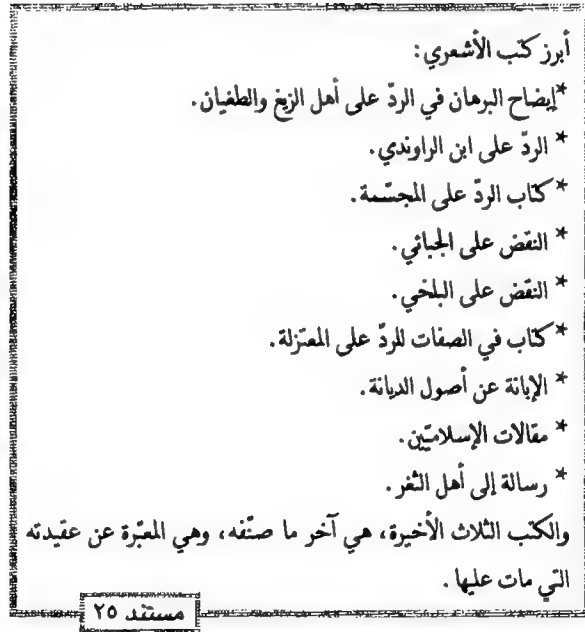 أبرز كتب الأشعري:
*إيضاح البرهان في الردّ على أهل الزيغ والطغيان.
* الردّ على ابن الراوندي.
* كتاب الردّ على المجسّمة.
* النقض على الجبائي.
* النقض على البلخي.
* كتاب في الصفات للردّ على المعتزلة.
* الإبانة عن أصول الديانة.
* مقالات الإسلاميّين.
* رسالة إلى أهل الثغر.
والكتب الثلاث الأخيرة، هي آخر ما صنّفه، وهي المعبّرة عن عقيدته
التي مات عليها.
مستند ٢٥